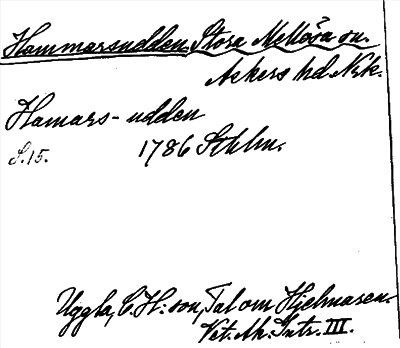 Hammarsudden Stora Mellösa sn.
Askers hd Nrk.
Hamars-udden
S. 15. 1786 Sthlm.
Uggla, C. H:son, Tal om Hjelmaren.
Vet. Ak. Intr. III.